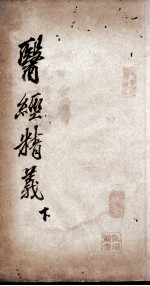 醫經精義
下